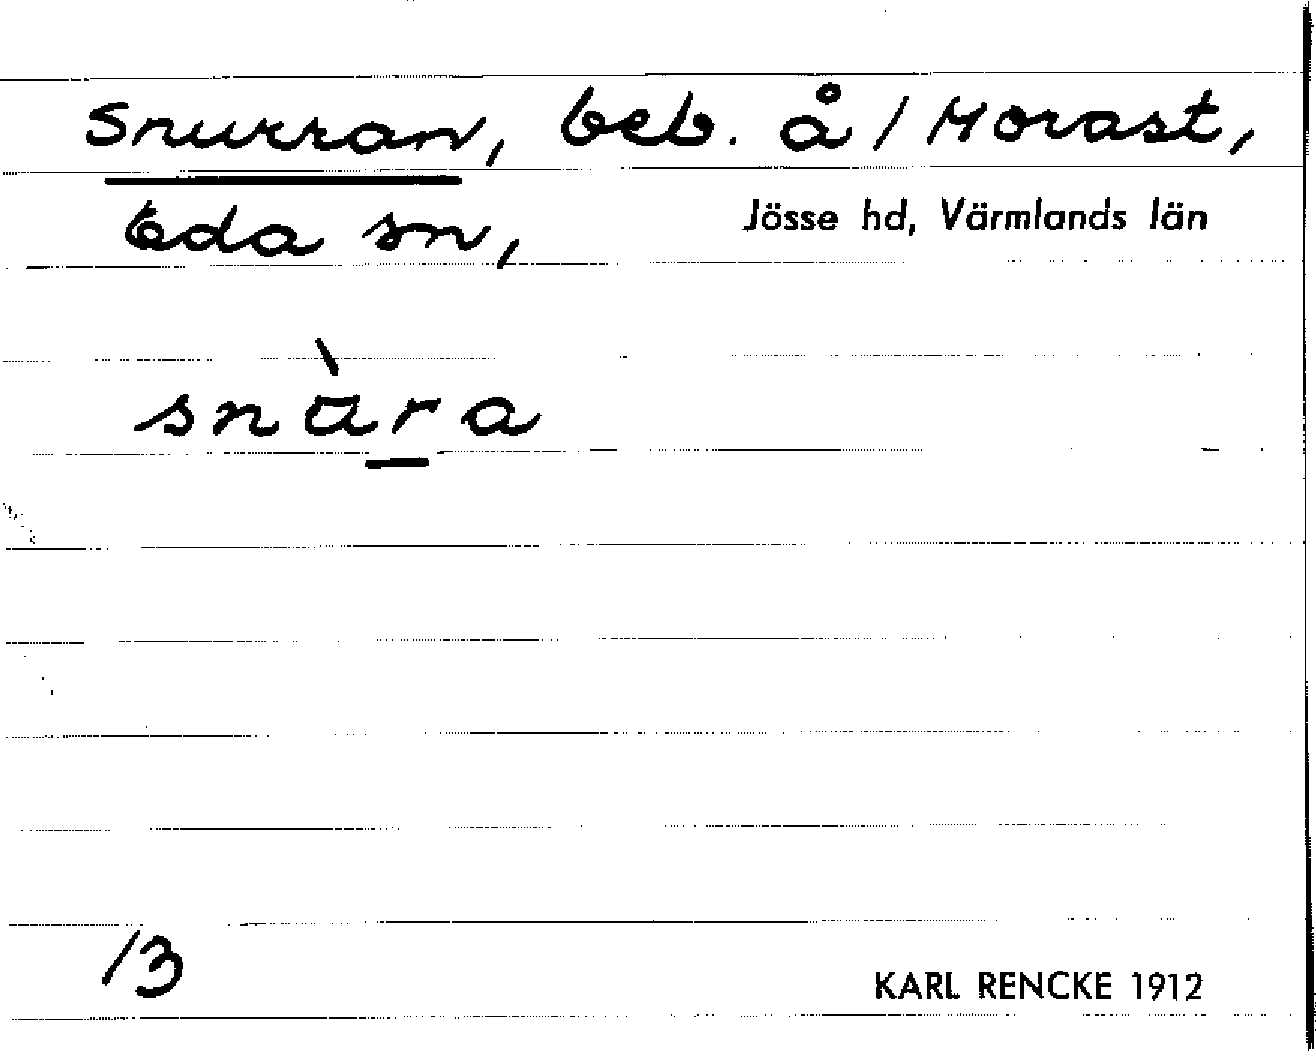 Snurran, beb. å / Morast,
Eda sn, Jösse hd, Värmlands län
snùra
/3
KARL RENCKE 1912